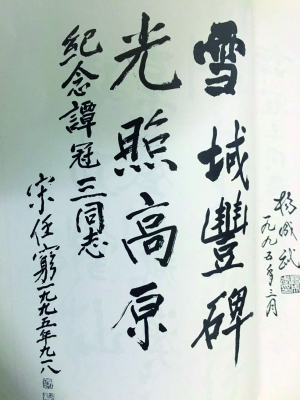 雪域豐碑
楊成武
一九九五年三月
光照高原
紀念譚冠三同志
宋任窮一九九五年九一八